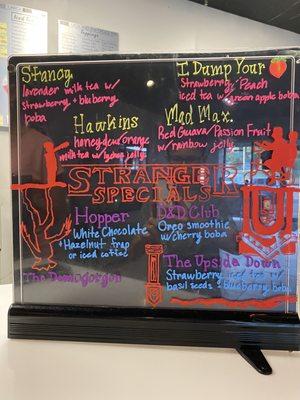 Stancy
lavender milk tea w/
strawberry + blueberry
boba
I Dump Your
Strawberry Peach
iced tea w/ green apple boba
Hawkins
honeydew orange
milk tea w/ lychee jelly
Mad Max
Red Guava/Passion Fruit
w/ rainbow jelly
STRANGER
SPECIALS
Hopper
White Chocolate
+ Hazelnut frap
or iced coffee
D&D Club
Oreo smoothie
w/ cherry boba
The Demogorgon
The Upside Down
Strawberry iced tea w/
basil seeds + blueberry boba